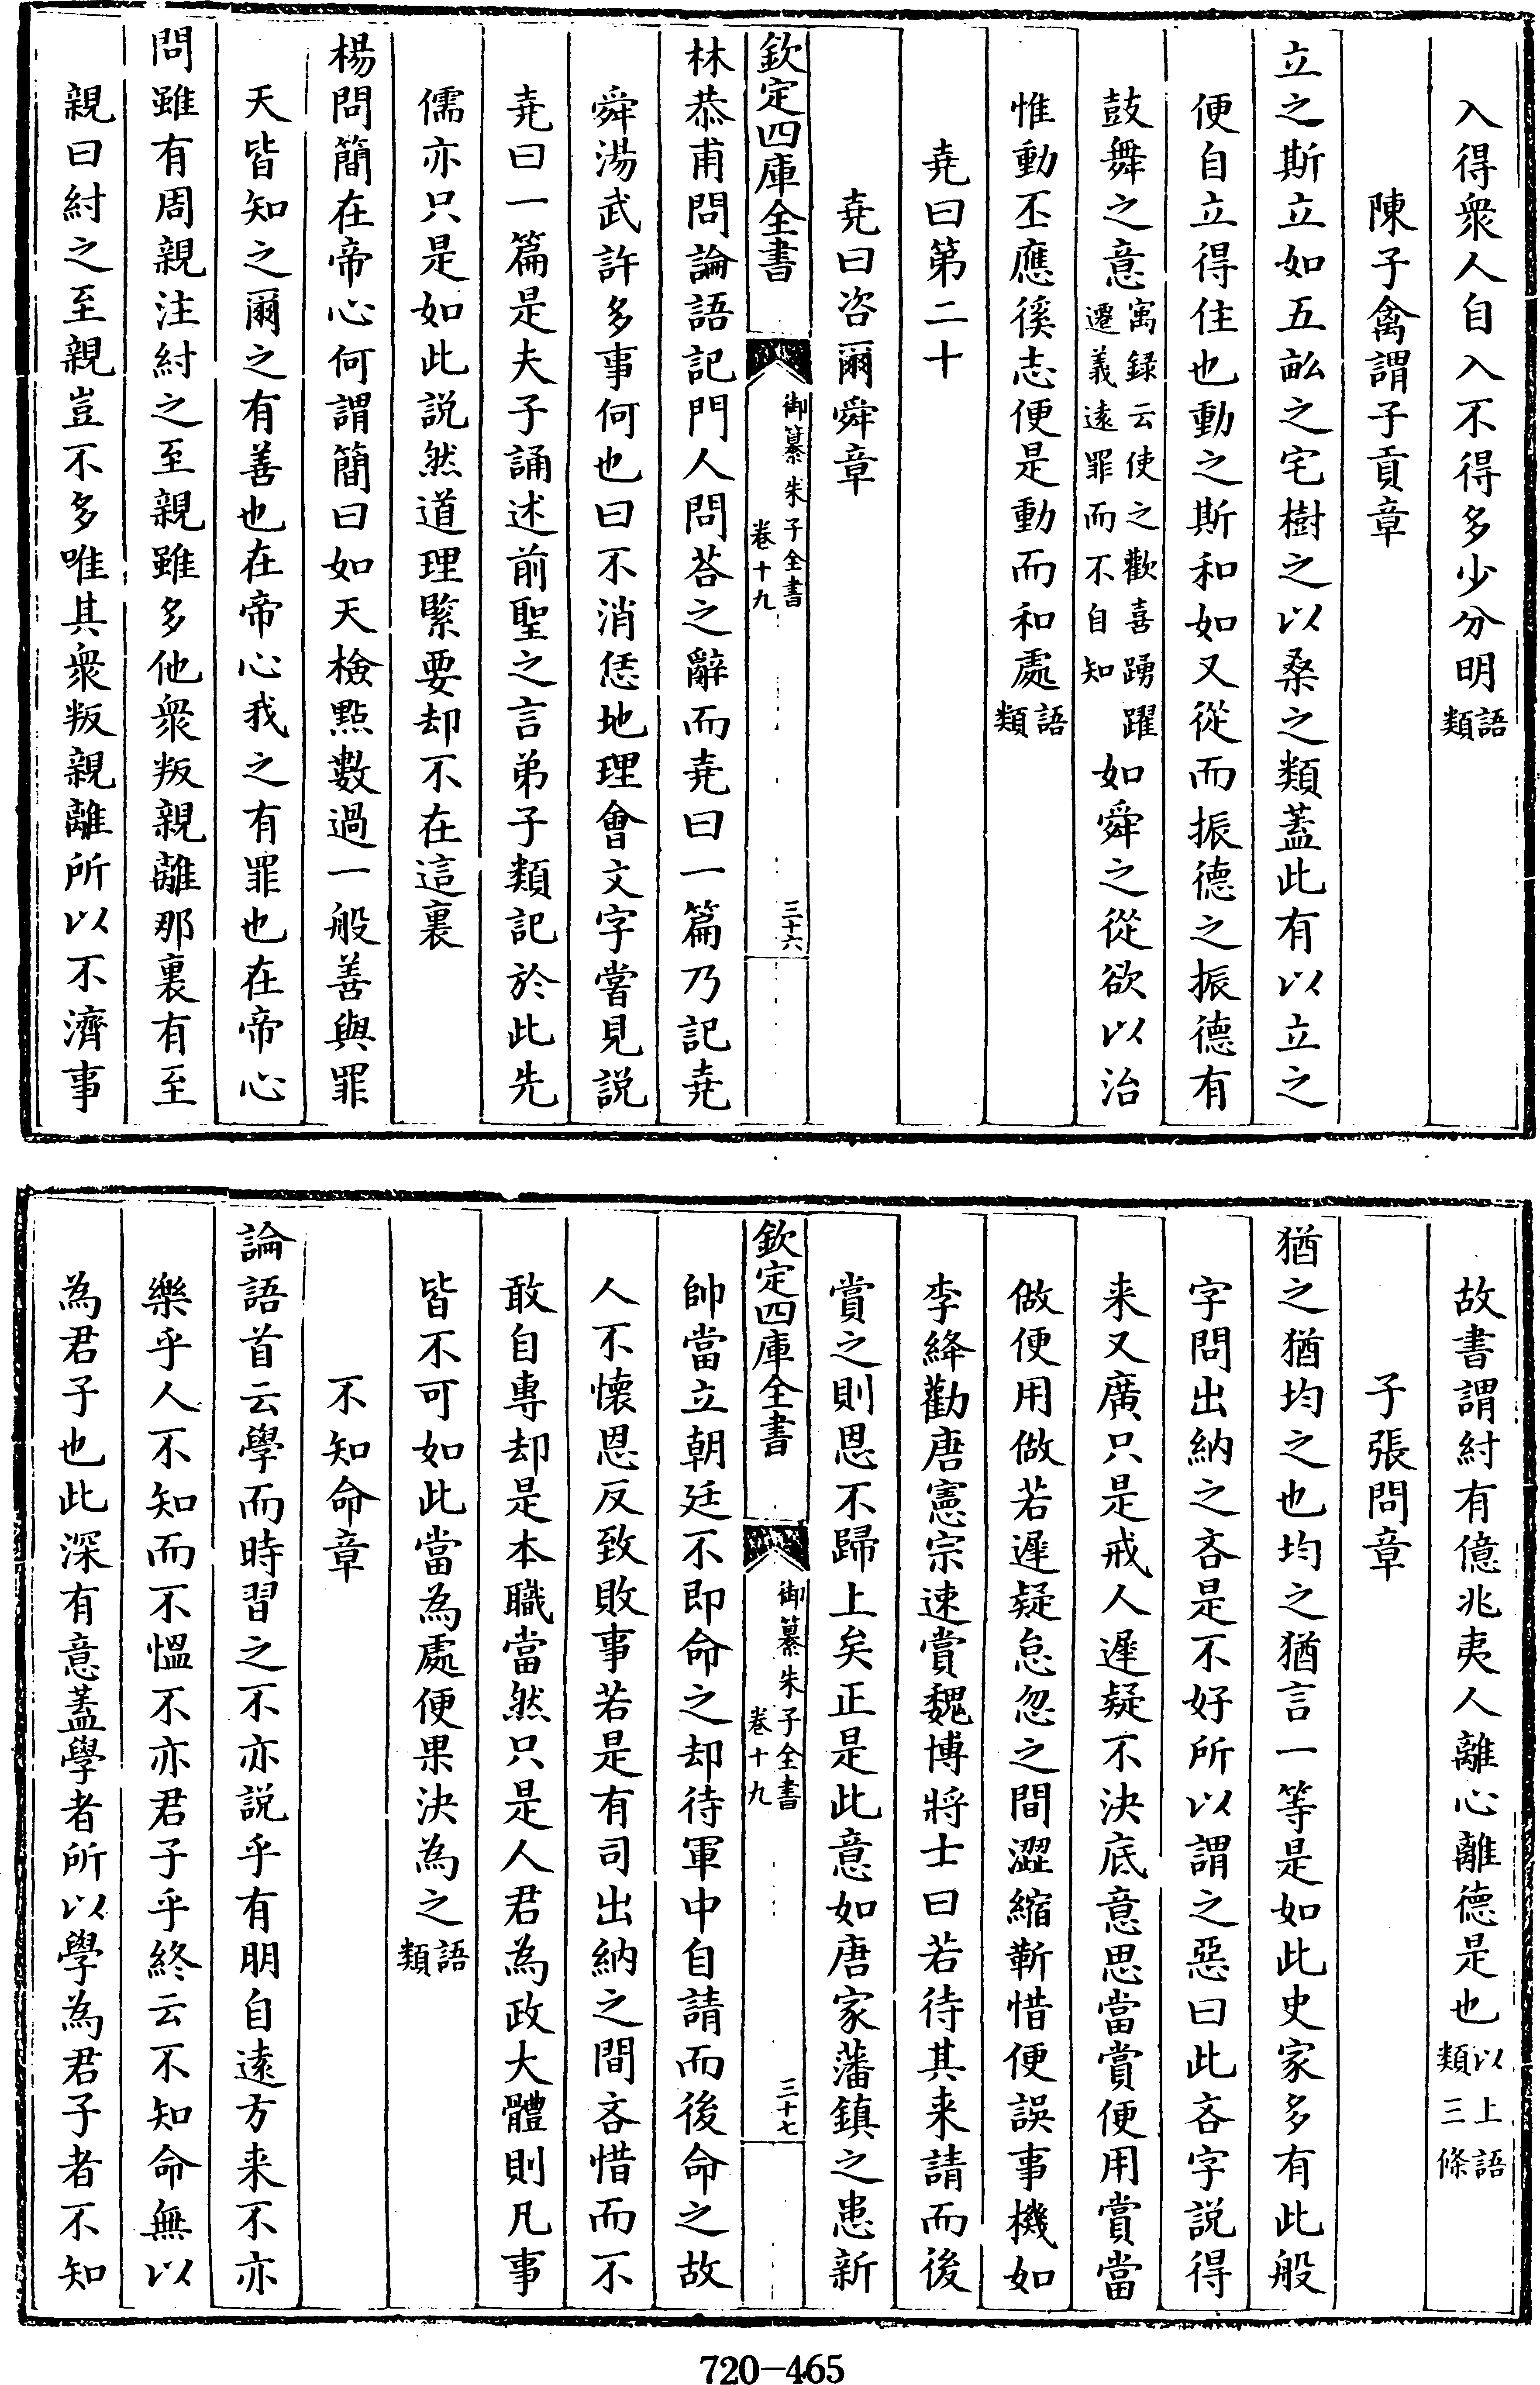 入得衆人自入不得多少分明語類
陳子禽謂子貢章
立之斯立如五畝之宅樹之以桑之類蓋此有以立之
便自立得住也動之斯和如又從而振德之振德有
鼓舞之意寓録云使之歡喜踴躍遷義逺罪而不自知如舜之從欲以治
惟動丕應徯志便是動而和處語類
堯曰第二十
堯曰咨爾舜章
欽定四庫全書 御纂朱子全書 卷十九 三十六
林恭甫問論語記門人問荅之辭而堯曰一篇乃記堯
舜湯武許多事何也曰不消恁地理會文字嘗見説
堯曰一篇是夫子誦述前聖之言弟子類記於此先
儒亦只是如此説然道理緊要却不在這裏
楊問簡在帝心何謂簡曰如天檢點數過一般善與罪
天皆知之爾之有善也在帝心我之有罪也在帝心
問雖有周親注紂之至親雖多他衆叛親離那裏有至
親曰紂之至親豈不多唯其衆叛親離所以不濟事
故書謂紂有億兆夷人離心離德是也以上語類三條
子張問章
猶之猶均之也均之猶言一等是如此史家多有此般
字問出納之吝是不好所以謂之惡曰此吝字説得
来又廣只是戒人遲疑不決底意思當賞便用賞當
做便用做若遲疑怠忽之間澀縮靳惜便誤事機如
李絳勸唐憲宗速賞魏博將士曰若待其来請而後
賞之則恩不歸上矣正是此意如唐家藩鎮之患新
欽定四庫全書 御纂朱子全書 卷十九 三十七
帥當立朝廷不即命之却待軍中自請而後命之故
人不懐恩反致敗事若是有司出納之間吝惜而不
敢自專却是本職當然只是人君為政大體則凡事
皆不可如此當為處便果決為之語類
不知命章
論語首云學而時習之不亦説乎有朋自逺方来不亦
樂乎人不知而不愠不亦君子乎終云不知命無以
為君子也此深有意蓋學者所以學為君子者不知
720-465